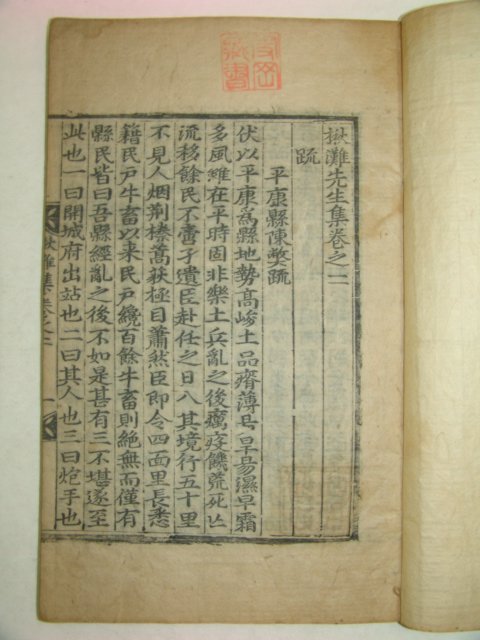 楸灘先生集卷之二
疏
平康縣陳弊疏
伏以平康爲縣地勢高峻土品瘠薄易旱易濕早霜
多風雖在平時固非樂土兵亂之後癘疫饑荒死亡
流移餘民不啻孑遺臣赴任之日入其境行五十里
不見人烟荆榛蒿荻極目蕭然臣即令四面里長悉
籍民戶牛畜以來民戶纔百餘牛畜則絶無而僅有
縣民皆曰吾縣經亂之後不如是甚有三不堪遂至
此也一曰開城府出站也二曰其人也三曰炮手也
楸灘集卷之二
一